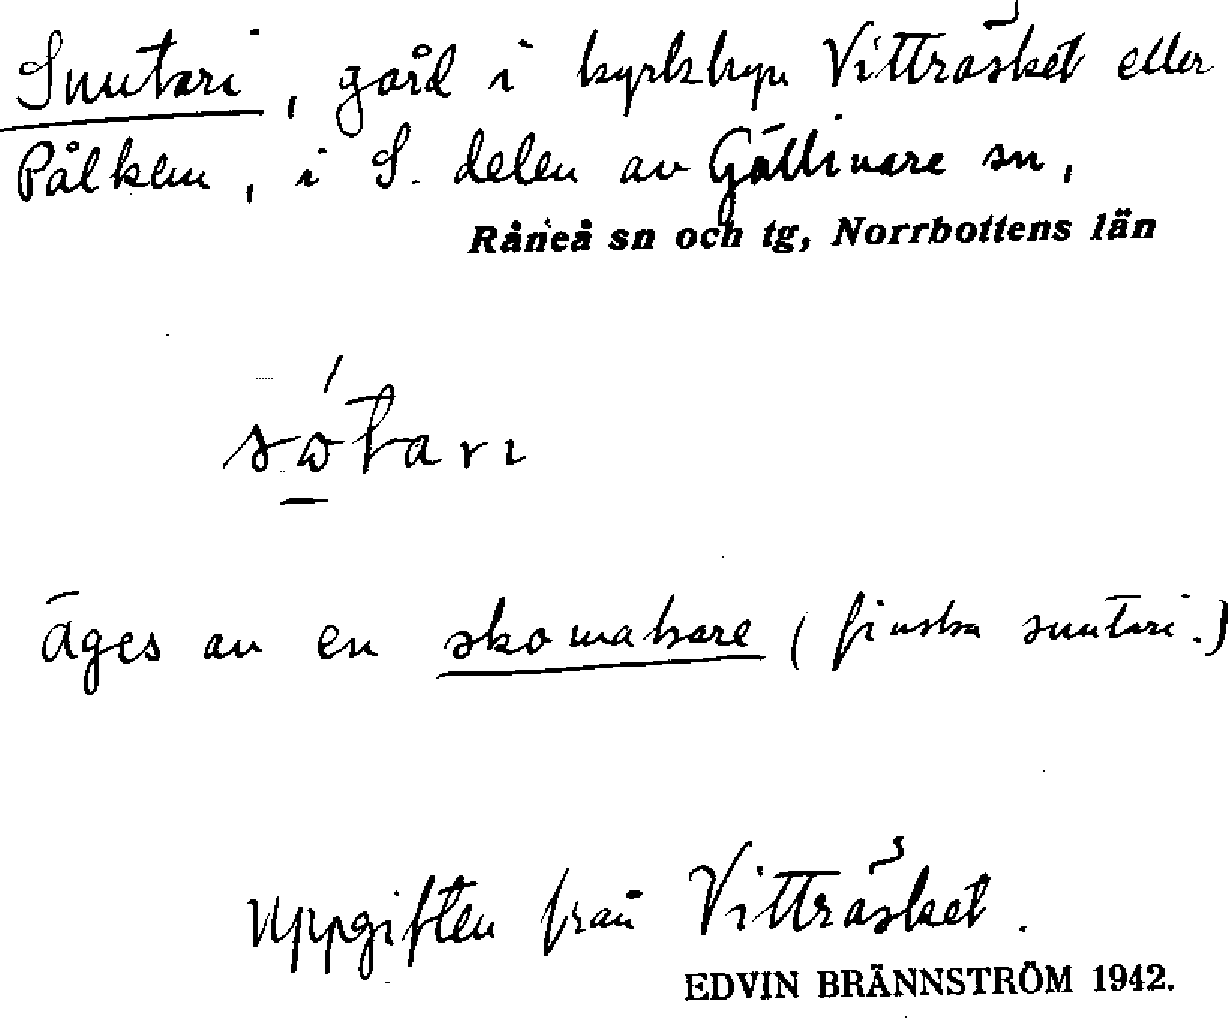 Suutari, gård i kyrkbyn Vitträsket eller
Pålkem, i S. delen av Gällivare sn,
Råneå sn och tg, Norrbottens län
sωtarι
äges av en skomakare (finska suutari.)
Uppgiften från Vitträsket.
EDVIN BRÄNNSTRÖM 1942.